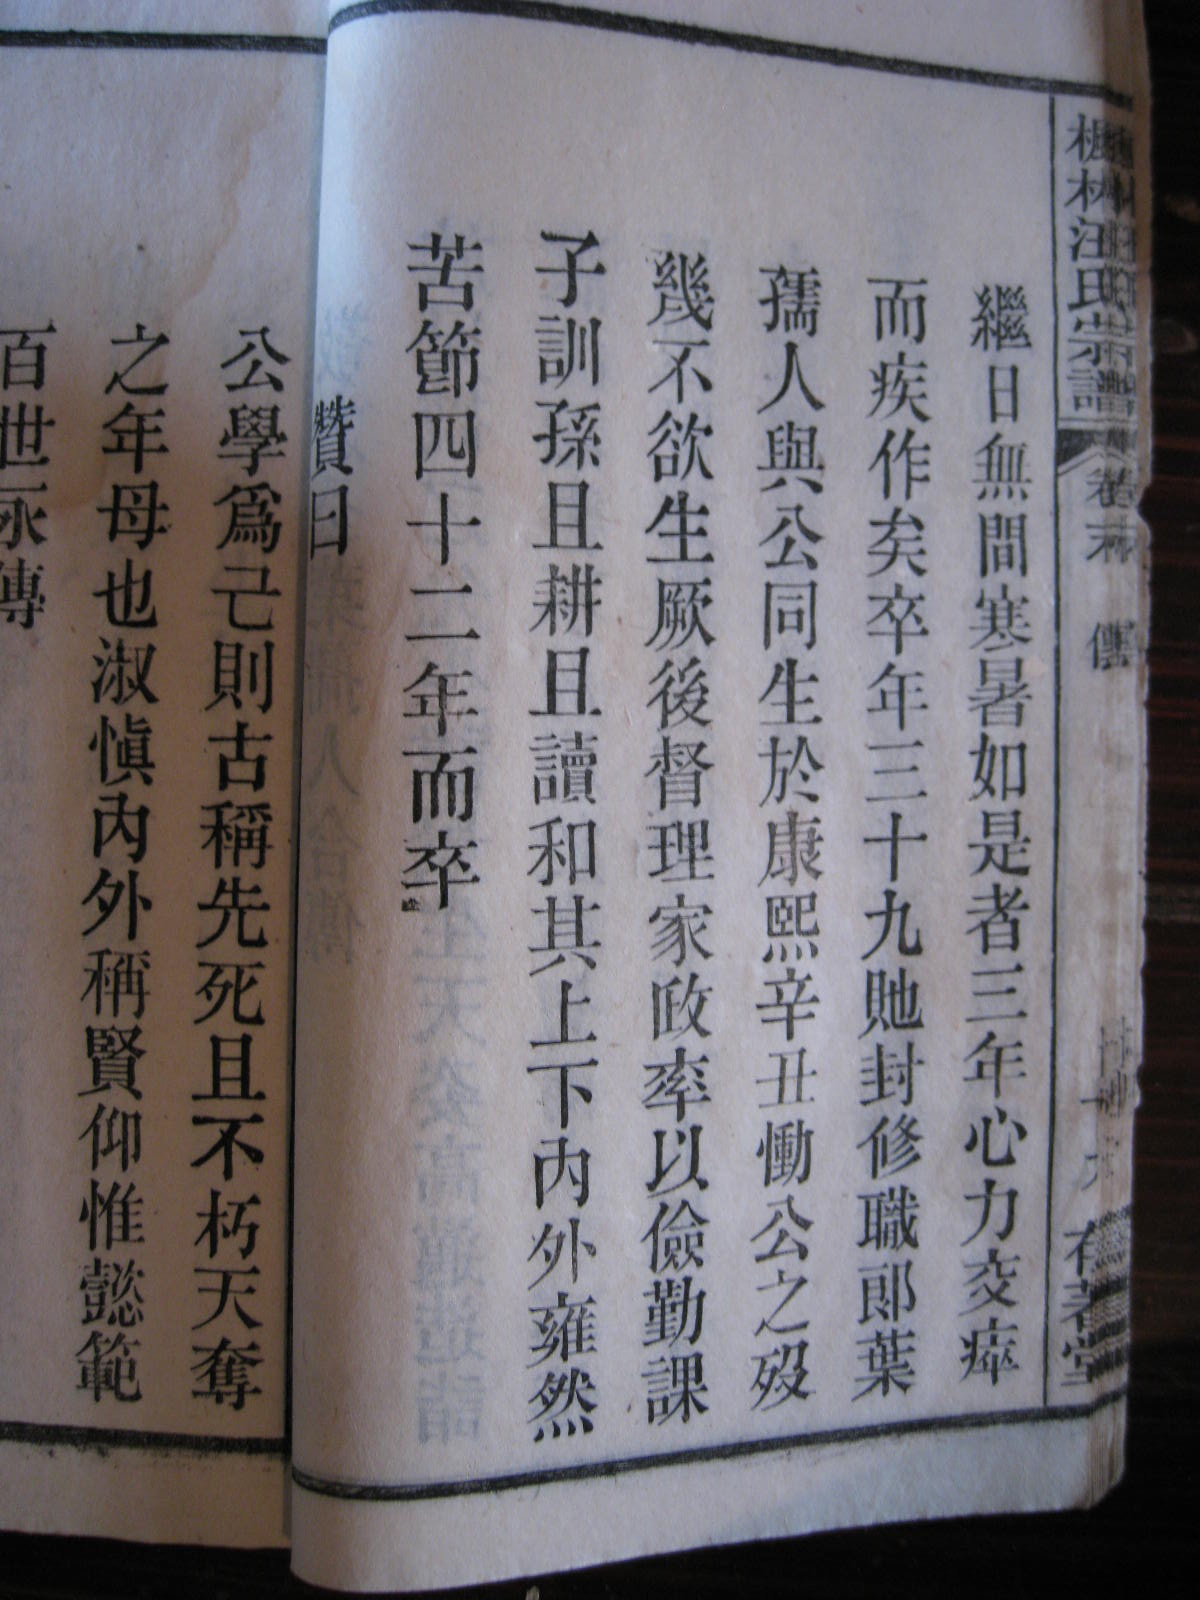 楓林汪氏宗譜 卷末 傳 存著堂
繼日無間寒暑如是者三年心力交瘁
而疾作矣卒年三十九貤封修職郎葉
孺人與公同生於康熙辛丑慟公之歿
幾不欲生厥後督理家政率以儉勤課
子訓孫且耕且讀和其上下內外雍然
苦節四十二年而卒
贊曰
公學爲己則古稱先死且不朽天奪
之年母也淑慎內外稱賢仰惟懿範
百世永傳